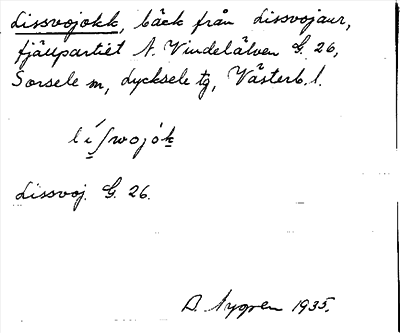 Lissvojokk, bäck från Lissvojaur,
fjällpartiet N. Vindelälven G. 26,
Sorsele sn, Lycksele tg, Västerb. l.
Lissvoj. G. 26.
A. Nygren 1935.